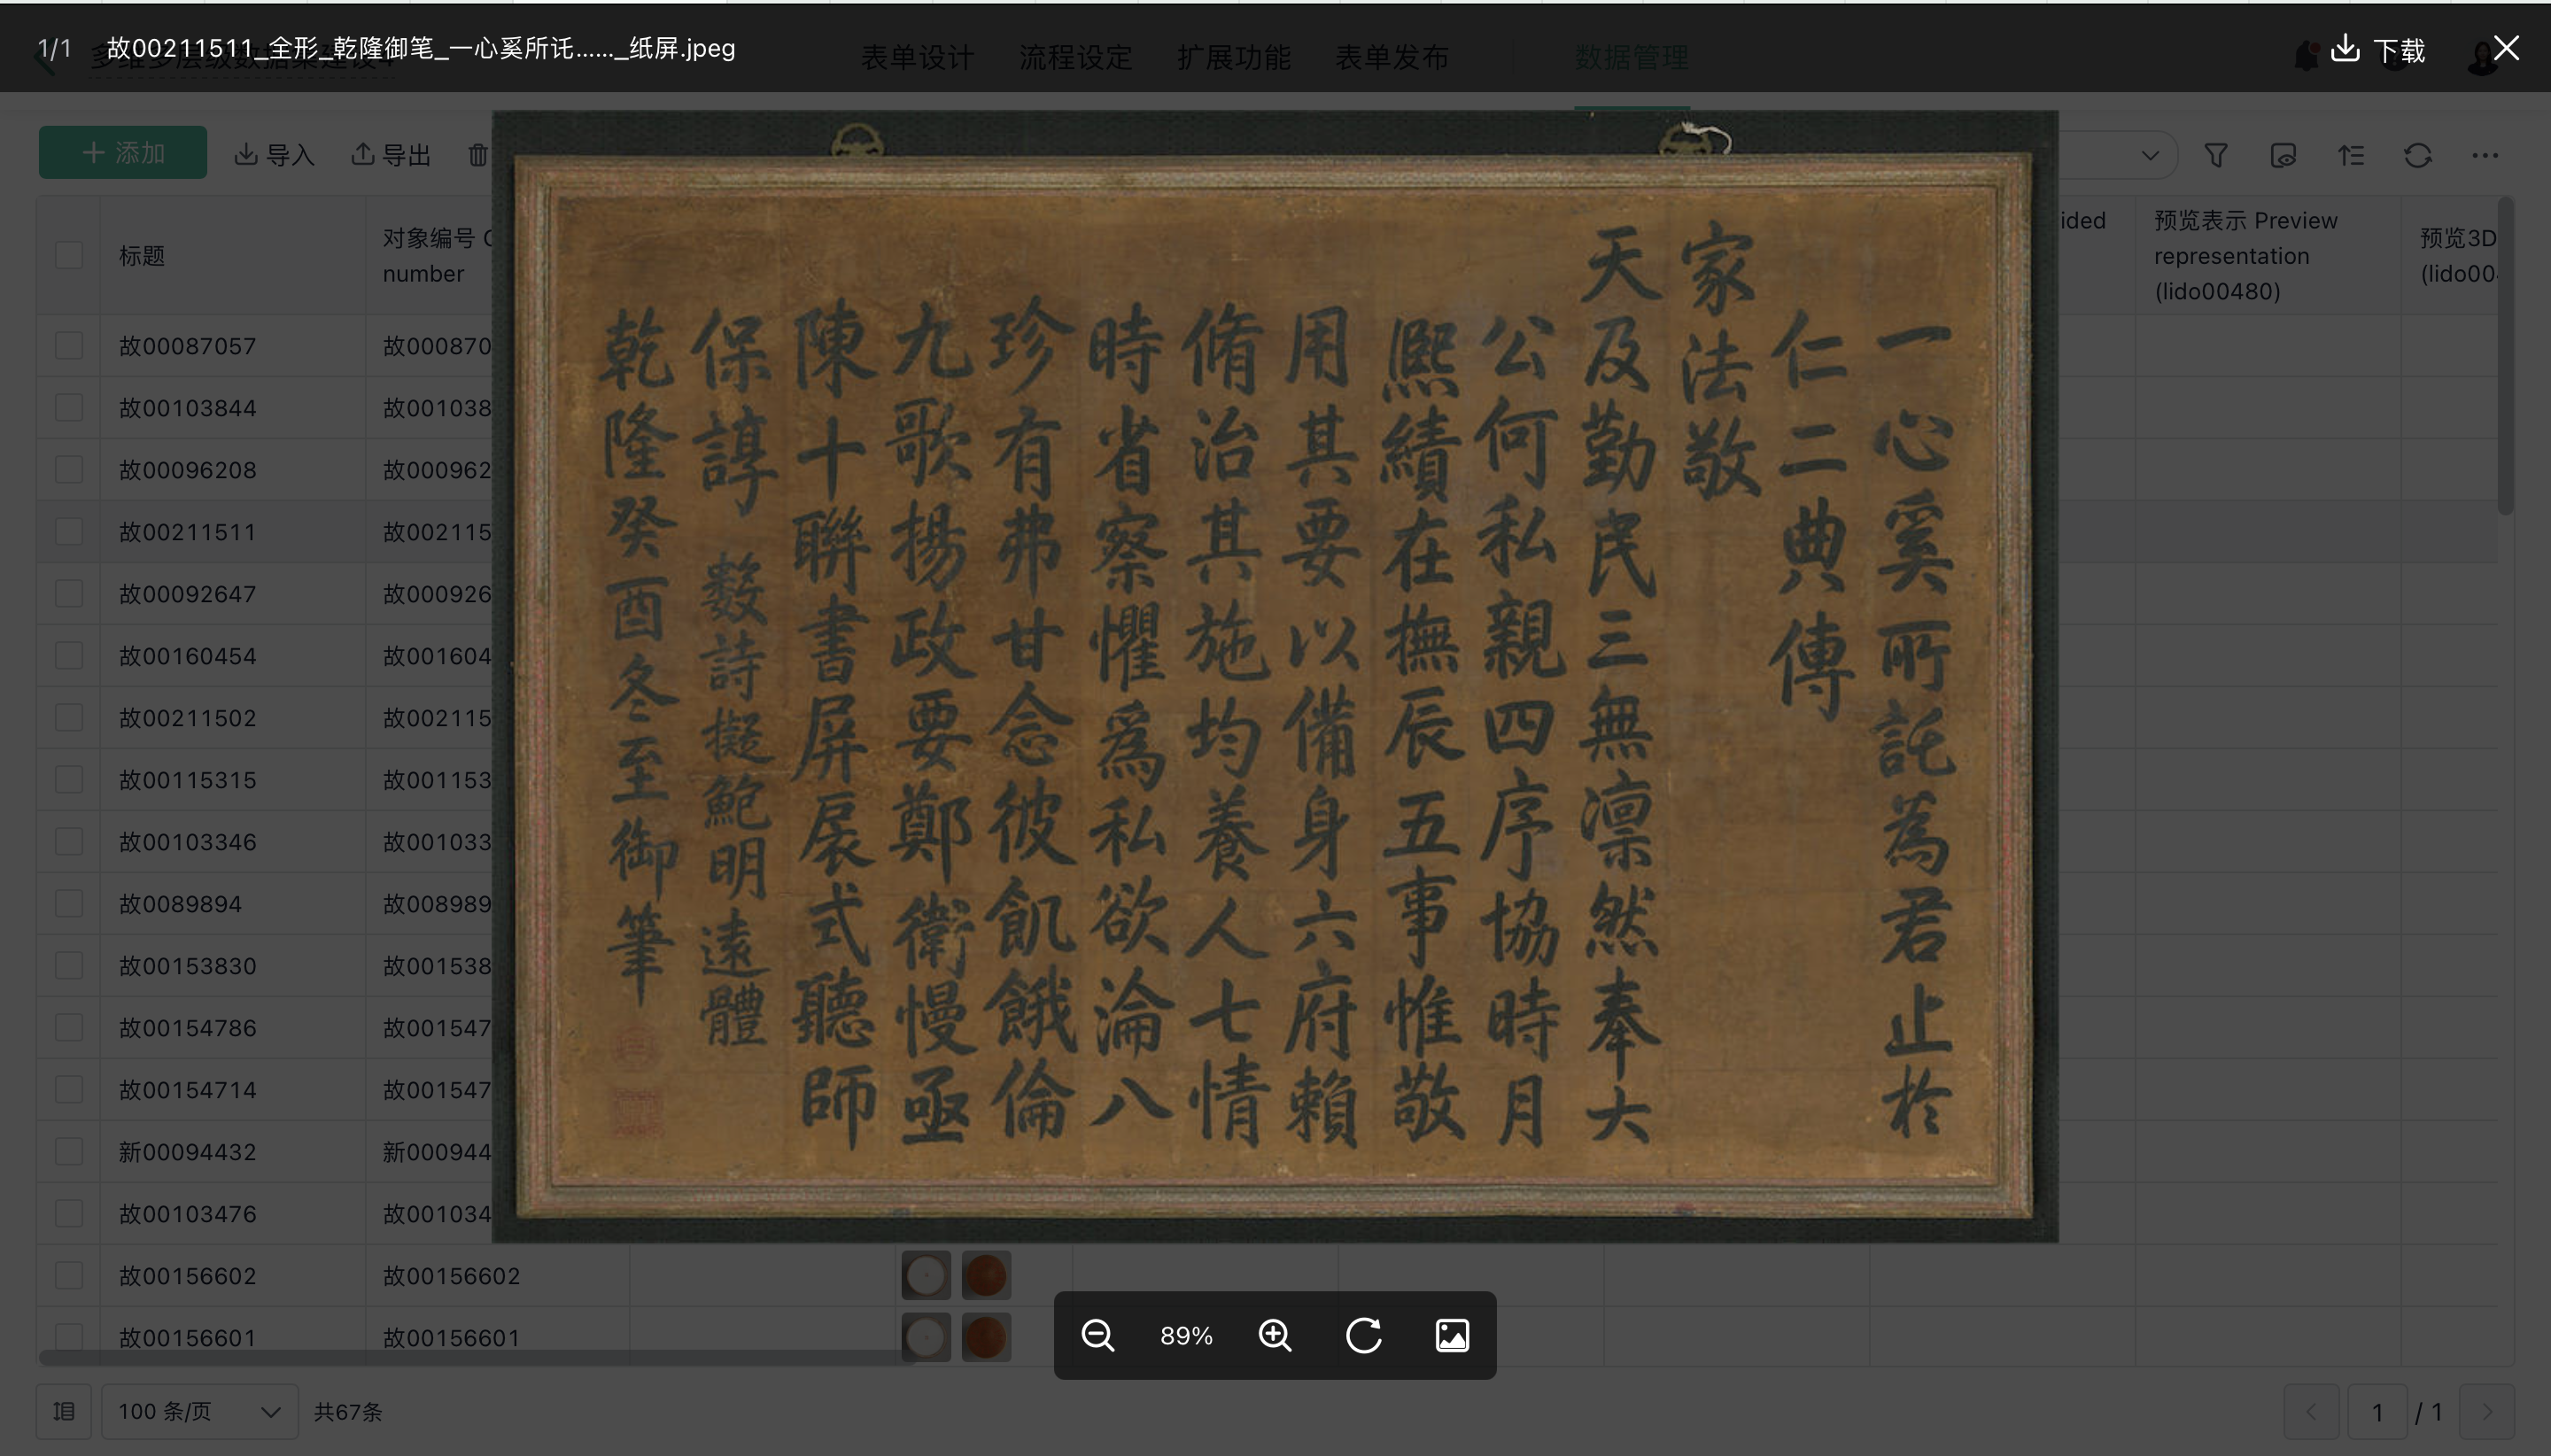 1/1 故00211511_全形_乾隆御笔_一心奚所讬......_纸屏.jpeg
下载
表单设计 流程设定 扩展功能 表单发布 数据管理
添加 导入 导出
标题
对象编号
number
预览表示 Preview
representation
(lido00480)
预览3D
一心奚所託為君止於
仁二典傳
家法敬
天及勤民三無凛然奉大
公何私親四序協時月
熈績在撫辰五事惟敬
用其要以備身六府賴
脩治其施均養人七情
時省察懼爲私欲淪八
珍有弗甘念彼飢餓倫
九歌揚政要鄭衛慢亟
陳十聯書屏扆式聽師
保諄 數詩擬鮑明遠體
乾隆癸酉冬至御筆
故00087057 故000870
故00103844 故001038
故00096208 故000962
故00211511 故002115
故00092647 故000926
故00160454 故001604
故00211502 故002115
故00115315 故001153
故00103346 故001033
故0089894 故008989
故00153830 故001538
故00154786 故001547
故00154714 故001547
新00094432 新000944
故00103476 故001034
故00156602 故00156602
故00156601 故00156601
89%
100 条/页 共67条
1 / 1